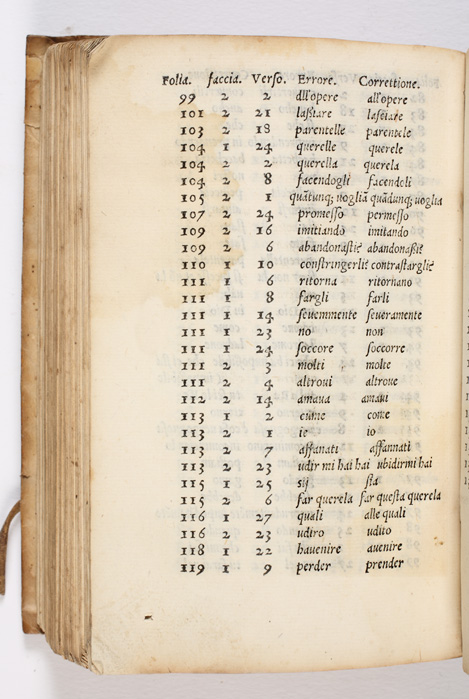 Folia. faccia. Verso. Errore. Correttione.
99 2 2 dll'opere all'opere
101 2 21 lastare lasciare
103 2 18 parentelle parentele
104 1 24 querelle querele
104 2 2 querella querela
104 2 8 facendogli facendoli
105 2 1 quãtunq; uogliã quãdunq; uoglia
107 2 24 promesso permesso
109 2 16 imitiando imitando
109 2 6 abandonastiĕ abandonassiĕ
110 1 10 constringerliĕ contrastargliĕ
111 1 6 ritorna ritornano
111 1 8 fargli farli
111 1 14 seuemmente seueramente
111 1 23 no non
111 1 24 soccore soccorre
111 2 3 molti molte
111 2 4 altroui altroue
112 2 14 amaua amaui
113 1 2 cume come
113 2 1 ie io
113 2 7 affanati affannati
113 2 23 udir mi hai hai ubidirmi hai
115 1 25 sij sia
115 2 6 far querela far questa querela
116 1 27 quali alle quali
116 2 23 udiro udito
118 1 22 hauenire auenire
119 1 9 perder prender